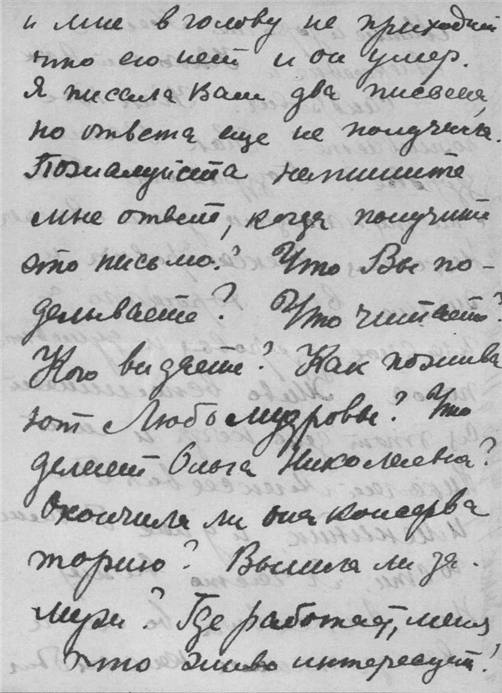 и мне в голову не приходит
что его нет и он умер.
Я писала Вам два письма,
но ответа еще не получила.
Пожалуйста напишите
мне ответ, когда получите
это письмо? Что Вы по-
делываете? Что читаете?
Кого видаете? Как пожива
ют Любомудровы? Что
делает Ольга Николаевна?
Окончила ли она консерва
торию? Вышла ли за-
муж? Где работает, меня
что живо интересует!